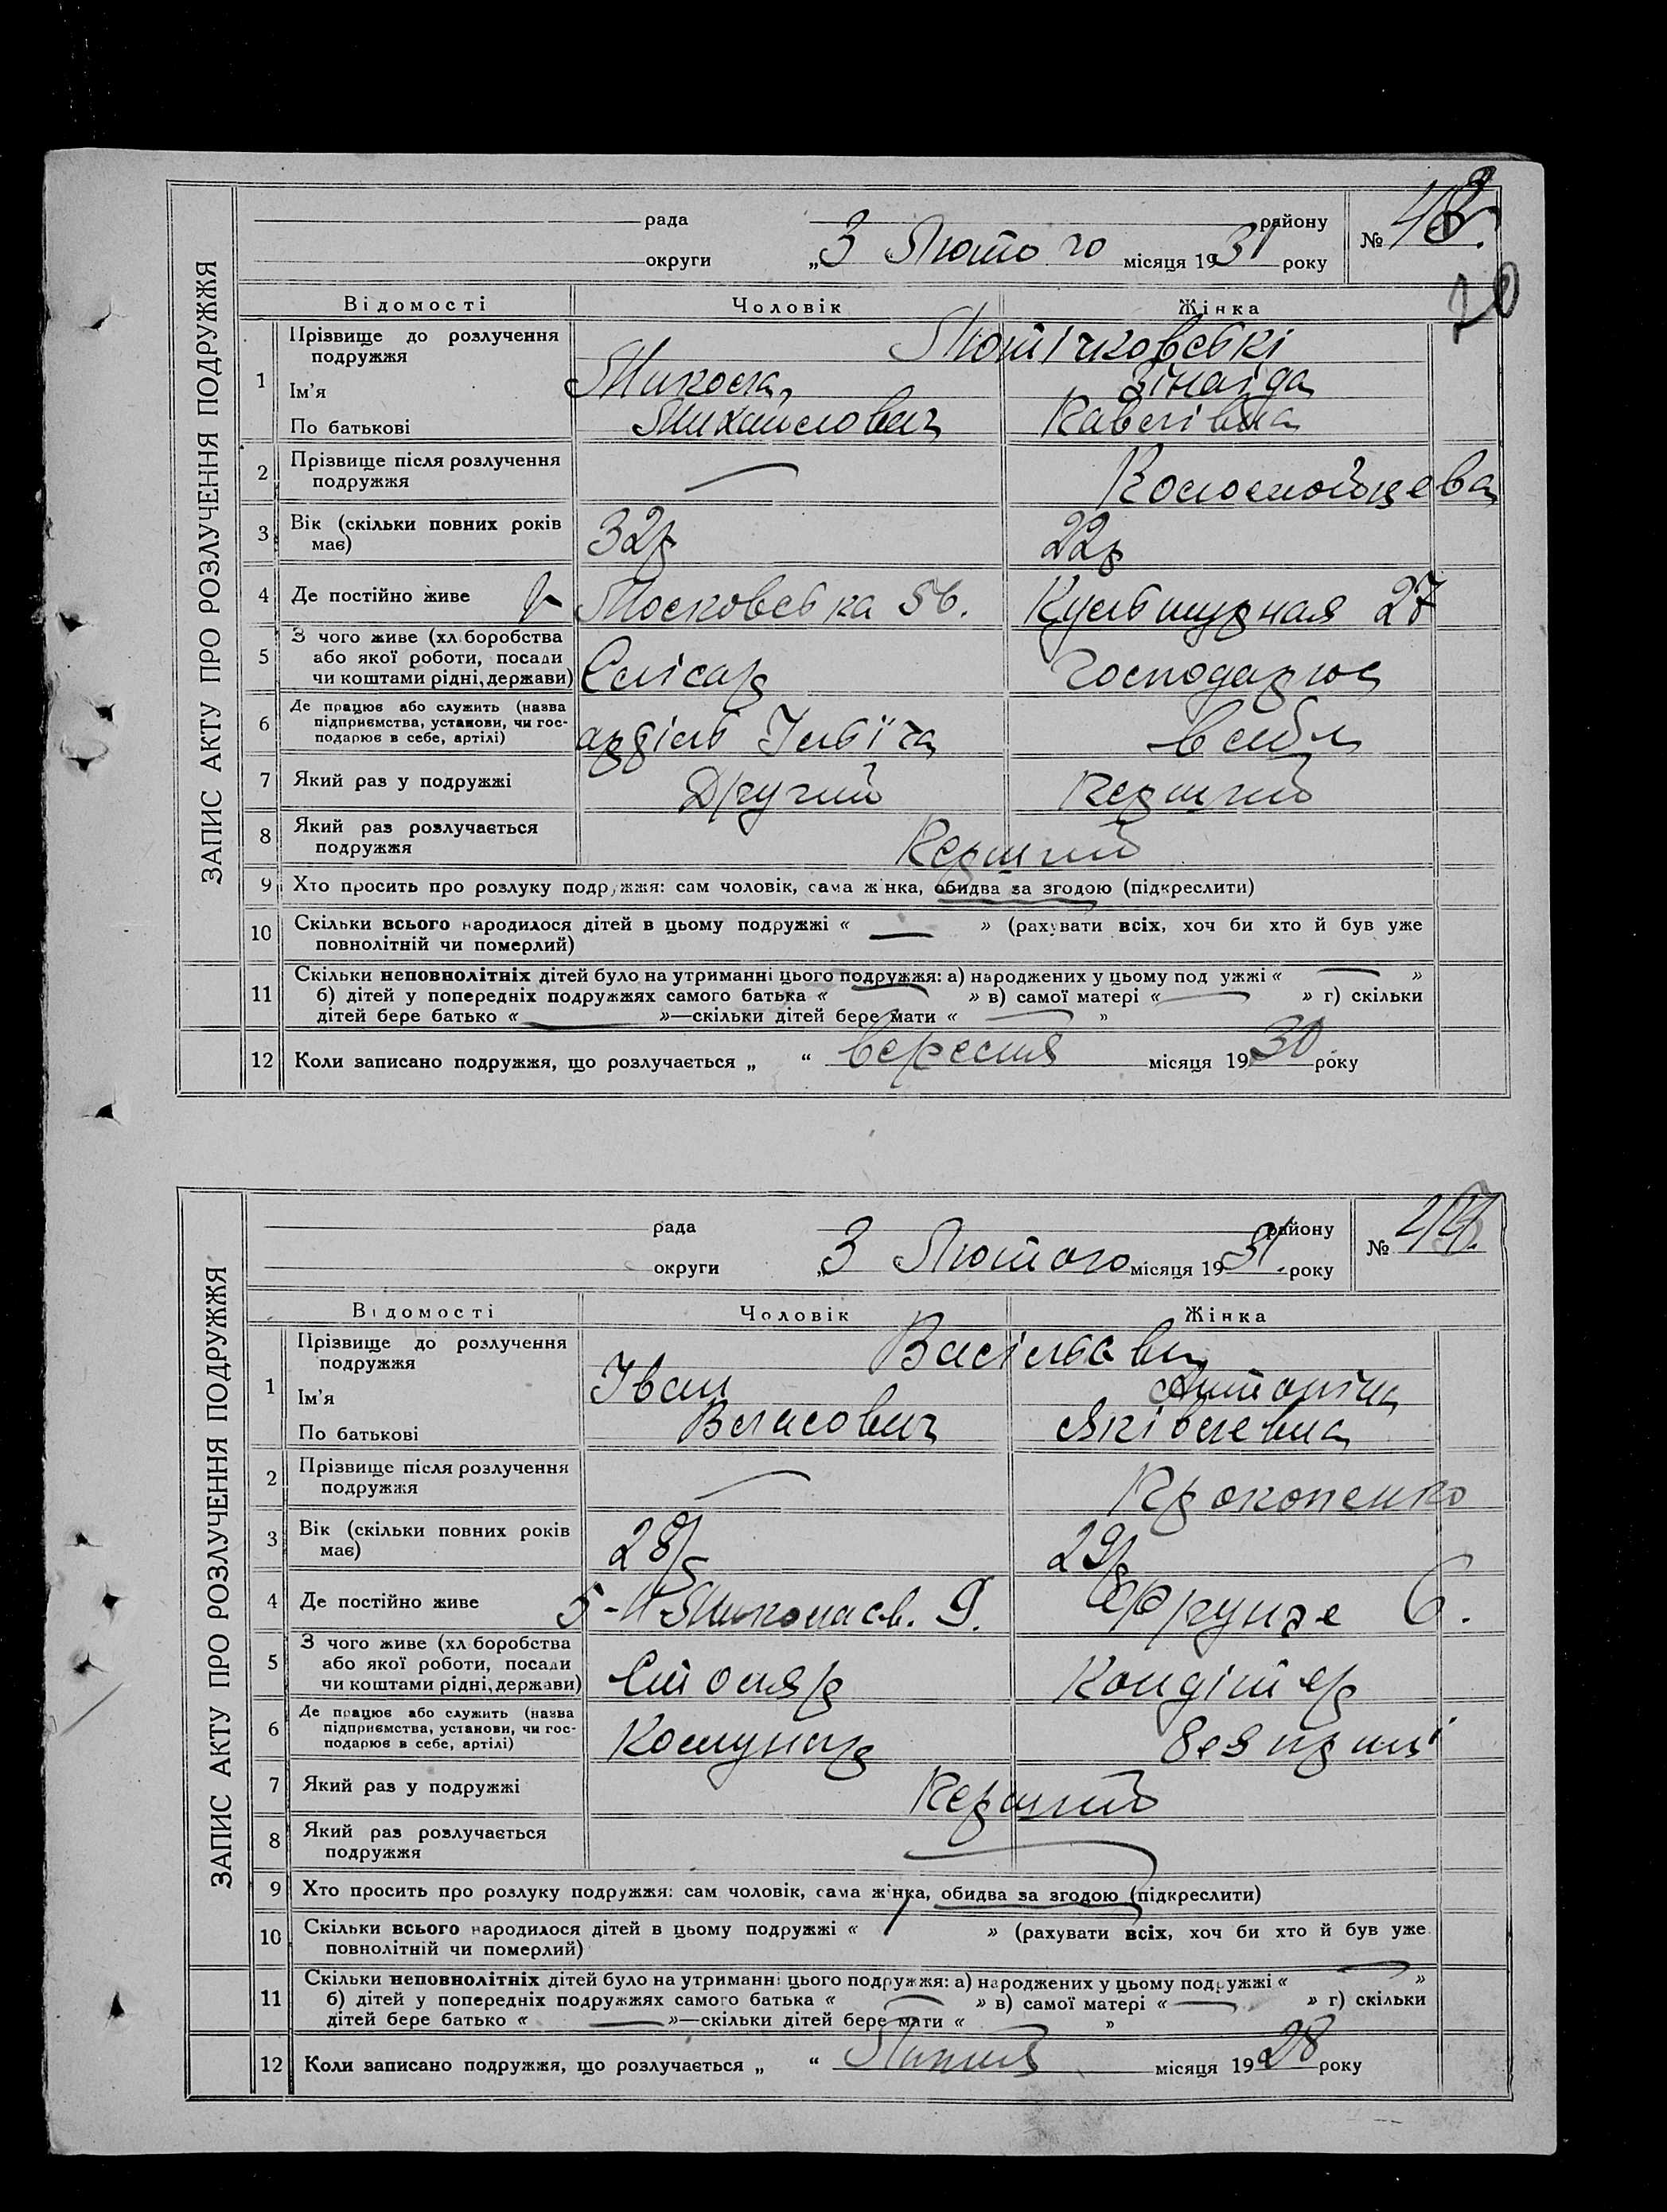 ЗАПИС АКТУ ПРО РОЗЛУЧЕННЯ ПОДРУЖЖЯ
рада района
округи „3 Лютого місяця 1931 року
№ 43.
20
Відомості Чоловік Жінка
1 Прізвище до розлучення
подружжя
Ім’я Микола, Зінаіда
По батькові Михайлович Павлівна
2 Прізвище після розлучення
подружжя —
3 Вік (скільки повних років 32р 22р
має)
4 Де постійно живе Московська 56. Культурная 27
5 З чого живе (хліборобства
або якої роботи, посади
чи коштами рідні, держави) Слісар Господарює
6 Де працює або служить (назва
підприємства, установи, чи гос-
подарює в себе, артілі) артіль Ілліча в себе
7 Який раз у подружжі Другий Перший
8 Який раз розлучається
подружжя Перший
9 Хто просить про розлуку подружжя: сам чоловік, сама жінка, обидва за згодою (підкреслити)
10 Скільки всього народилося дітей в цьому подружжі « — » (рахувати всіх, хоч би хто й був уже
повнолітній чи померлий)
11 Скільки неповнолітніх дітей було на утриманні цього подружжя: а) народжених у цьому подружжі « — »
б) дітей у попередніх подружжях самого батька « — » в) самої матері « — » г) скільки
дітей бере батько « — »—скільки дітей бере мати « — »
12 Коли записано подружжя, що розлучається „ “ вересня місяця 1930 року
ЗАПИС АКТУ ПРО РОЗЛУЧЕННЯ ПОДРУЖЖЯ
рада району
округи „3 Лютого місяця 1931. року
№ 44.
Відомості Чоловік Жінка
1 Прізвище до розлучення
подружжя Васільєви
Ім’я Іван Антоніна
По батькові Власович Яківлевна
2 Прізвище після розлучення
подружжя — Прокопенко
3 Вік (скільки повних років 28р 29р
має)
4 Де постійно живе Миколаєв. 9. Фрунзе 6.
5 З чого живе (хліборобства
або якої роботи, посади
чи коштами рідні, держави) Столяр Кондітер
6 Де працює або служить (назва
підприємства, установи, чи гос-
подарює в себе, артілі) Комунар
7 Який раз у подружжі Перший
8 Який раз розлучається
подружжя —
9 Хто просить про розлуку подружжя: сам чоловік, сама жінка, обидва за згодою (підкреслити)
10 Скільки всього народилося дітей в цьому подружжі « » (рахувати всіх, хоч би хто й був уже
повнолітній чи померлий)
11 Скільки неповнолітніх дітей було на утриманні цього подружжя: а) народжених у цьому подружжі « — »
б) дітей у попередніх подружжях самого батька « — » в) самої матері « — » г) скільки
дітей бере батько « — »—скільки дітей бере мати « »
12 Коли записано подружжя, що розлучається „ “ Липня місяця 1928 року